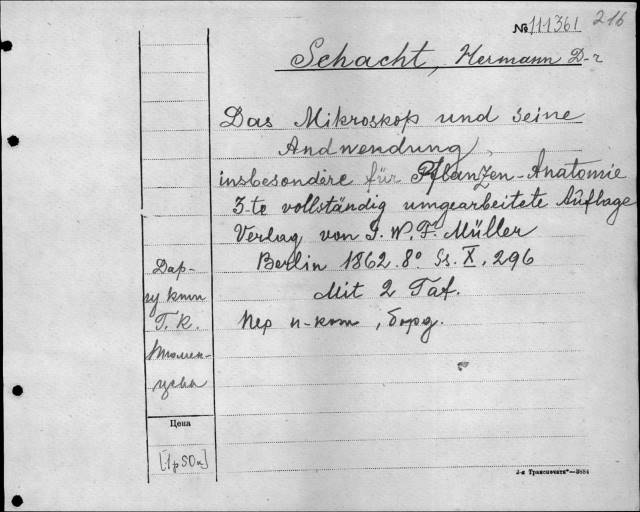 № 111361 216
Schacht, Hermann D-r
Das Mikroskop und seine
Andwendung,
insbesondere für Pflanzen-Anatomie
3-te vollständig umgearbeitete Auflage
Verlag von I. W. F. Müller
Berlin 1862. 8° Ss. X. 296
Mit 2 Taf.
Пер п-кот, борд.
Дар-
Г. К.
Тюмен-
цева
Цена
[1 р 50 к]
2-я Транспечать"—3684